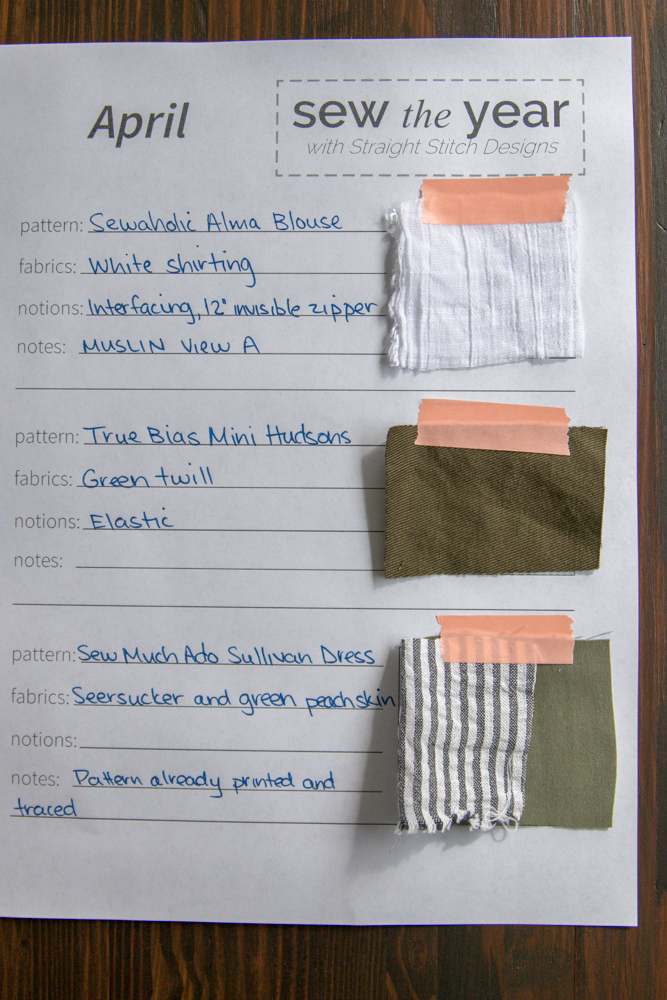 April
sew the year
with Straight Stitch Designs
pattern: Sewaholic Alma Blouse
fabrics: White shirting
notions: Interfacing, 12" invisible zipper
notes: MUSLIN View A
pattern: True Bias Mini Hudsons
fabrics: Green twill
notions: Elastic
notes:
pattern: Sew Much Ado Sullivan Dress
fabrics: Seersucker and green peachskin
notions:
notes: Pattern already printed and
traced